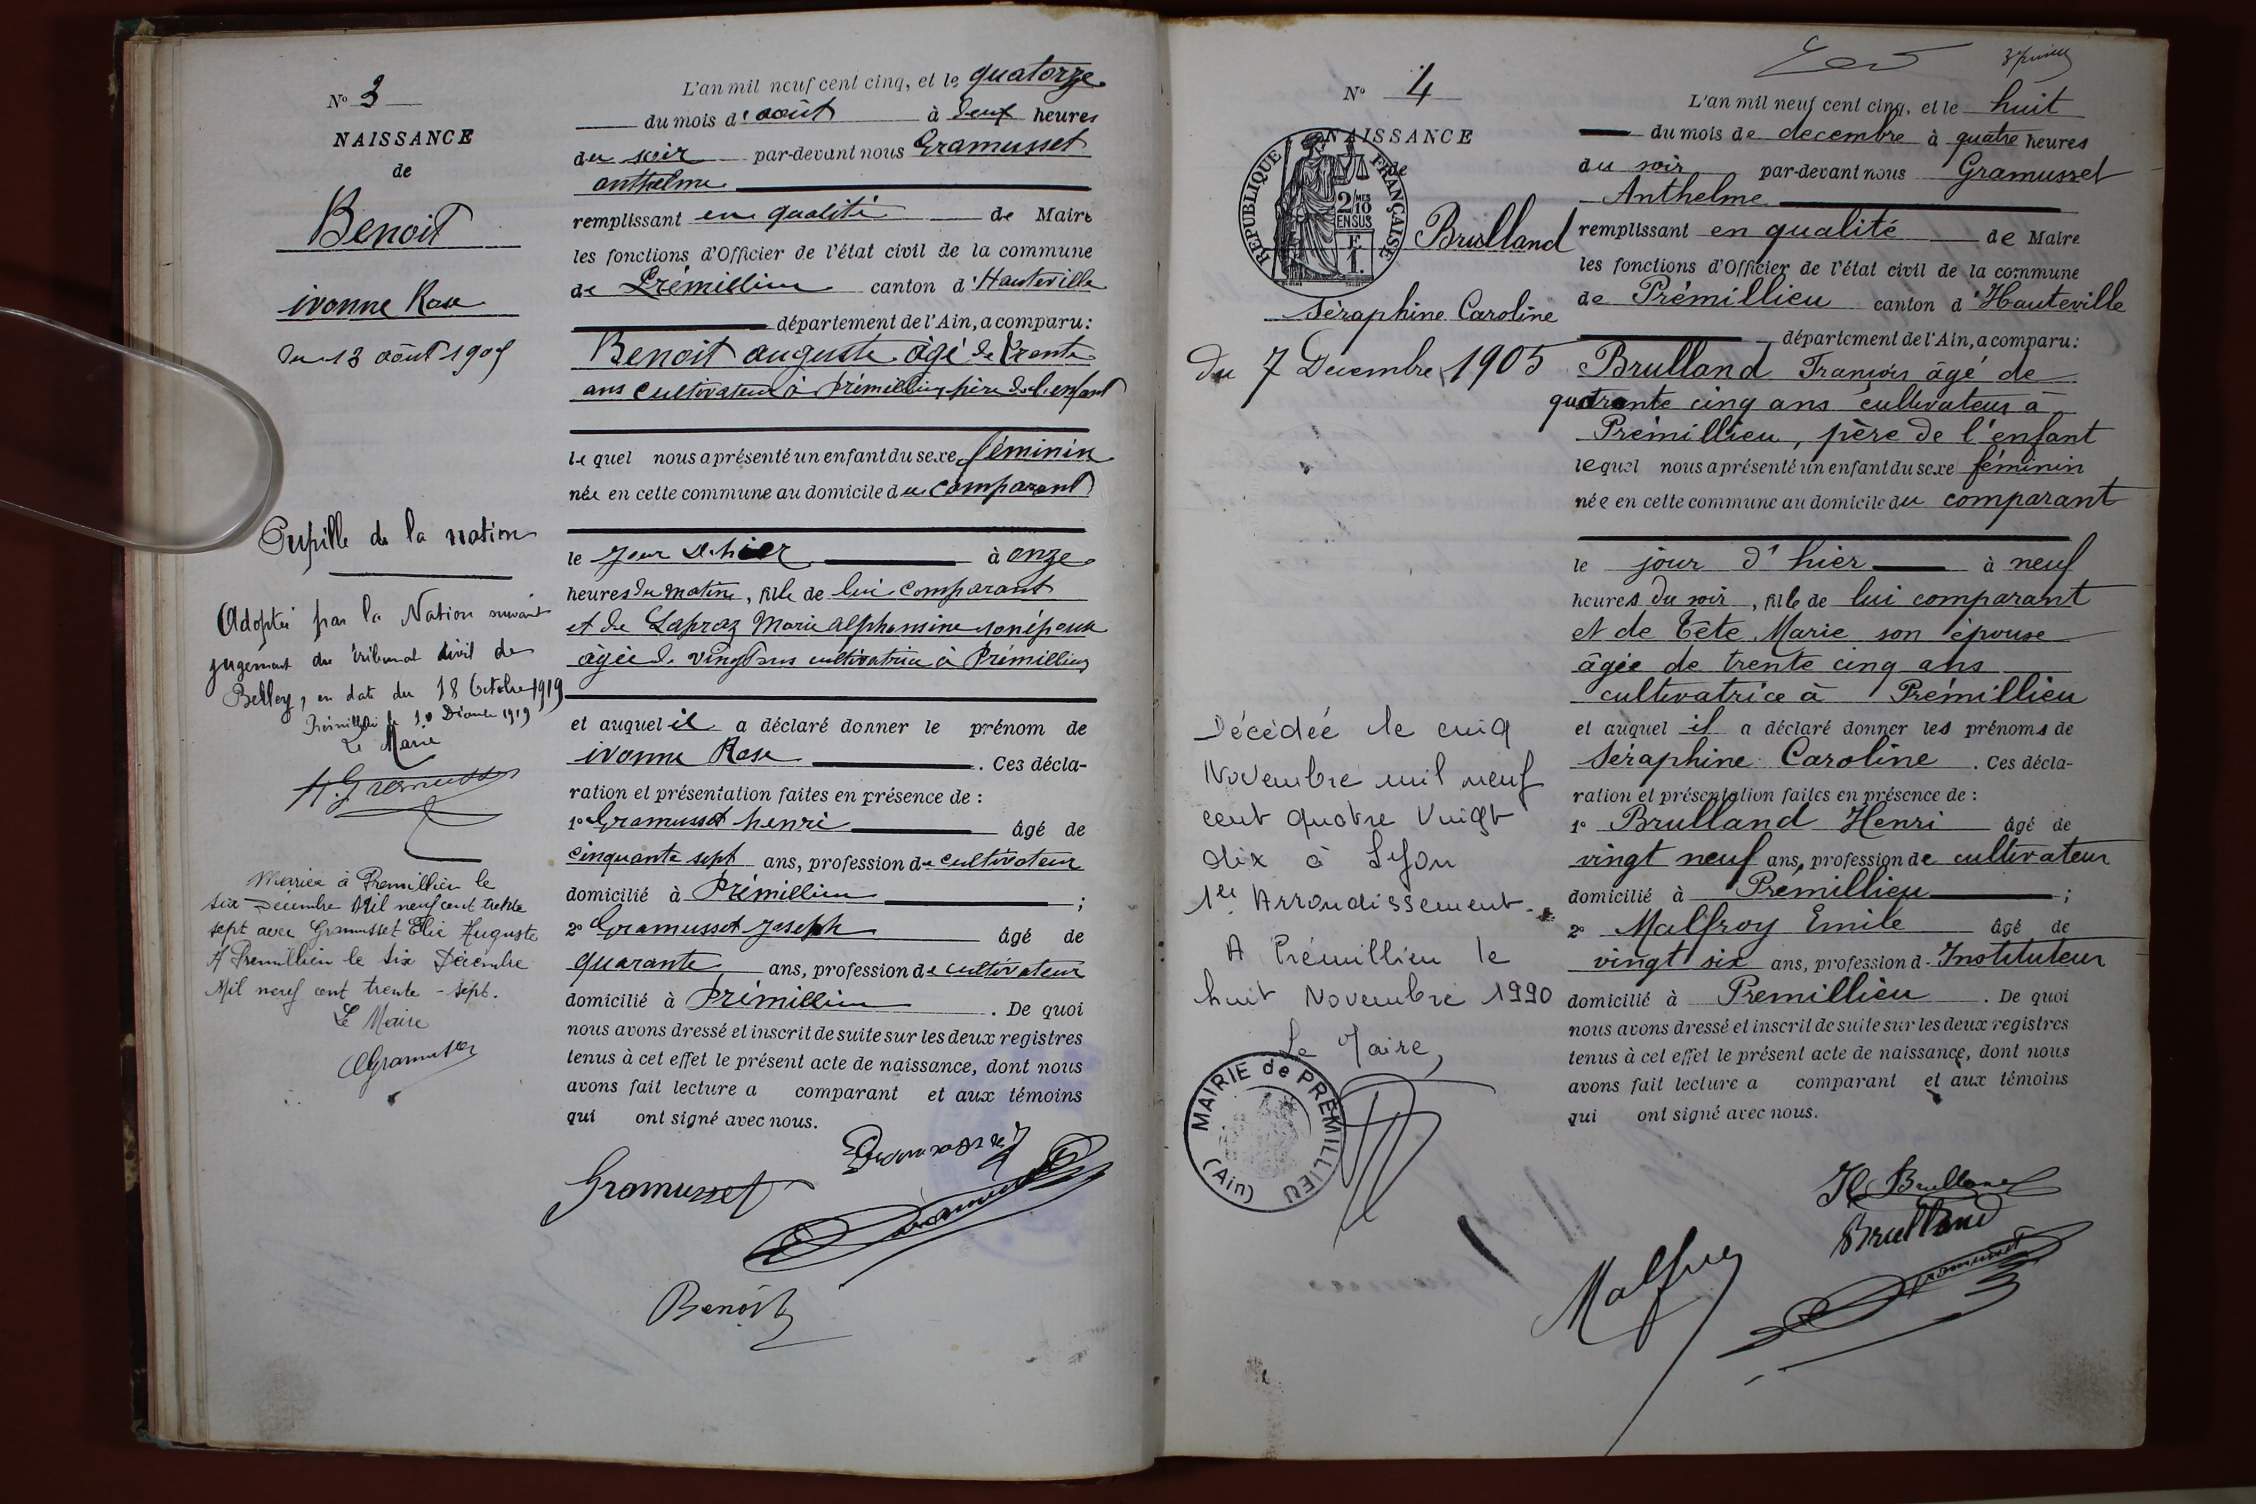 N° 3
NAISSANCE
de
Benoit
ivonne Rose
du 13 août 1905
Pupille de la nation
Adoptée par la Nation suivant
jugement du tribunal civil de
Belley, en date du 18 Octobre 1919
Prémillieu le 10 Décembre 1919
Le Maire
A. Gramusset
Mariée à Premillieu le
six Décembre Mil neuf cent trente
sept avec Gramusset Elie Auguste
A Premillieu le six Décembre
Mil neuf cent trente-sept.
Le Maire
Gramusset
L'an mil neuf cent cinq, et le quatorze
du mois d'août à deux heures
du soir par-devant nous Gramusset
anthelme
remplissant en qualité de Maire
les fonctions d'Officier de l'état civil de la commune
de Prémillieu canton d'Hauteville
département de l'Ain, a comparu:
Benoit auguste âgé de trente
ans cultivateur à Prémillieu, père de l'enfant
lequel nous a présenté un enfant du sexe féminin
née en cette commune au domicile du comparant
le jour d'hier à onze
heures du matin, fille de lui comparant
et de Lapraz Marie alphonsine son épouse
âgée de vingt ans cultivatrice à Prémillieu
et auquel il a déclaré donner le prénom de
ivonne Rose. Ces décla-
ration et présentation faites en présence de :
1° Gramusset henri âgé de
cinquante sept ans, profession de cultivateur
domicilié à Prémillieu ;
2° Gramusset Joseph âgé de
quarante ans, profession de cultivateur
domicilié à Prémillieu. De quoi
nous avons dressé et inscrit de suite sur les deux registres
tenus à cet effet le présent acte de naissance, dont nous
avons fait lecture a comparant et aux témoins
qui ont signé avec nous.
Gramusset
Gramusset
Gramusset
Benoit
N° 4
NAISSANCE
de
RÉPUBLIQUE FRANÇAISE
2/10
MES
EN SUS
Brulland
Séraphine Caroline
Du 7 Decembre 1905
Décédée le cinq
Novembre mil neuf
cent quatre vingt
dix à Lyon
1er Arrondissement.
A Prémillieu le
huit Novembre 1990
Le Maire,
MAIRIE de PRÉMILLIEU
(Ain)
L'an mil neuf cent cinq, et le huit
du mois de decembre à quatre heures
du soir par-devant nous Gramusset
Anthelme
remplissant en qualité de Maire
les fonctions d'Officier de l'état civil de la commune
de Prémillieu canton d'Hauteville
département de l'Ain, a comparu:
Brulland François âgé de
quarante cinq ans cultivateur à
Prémillieu, père de l'enfant
lequel nous a présenté un enfant du sexe féminin
née en cette commune au domicile du comparant
le jour d'hier à neuf
heures du soir, fille de lui comparant
et de Tête Marie son épouse
âgée de trente cinq ans
cultivatrice à Prémillieu
et auquel il a déclaré donner les prénoms de
Séraphine Caroline. Ces décla-
ration et présentation faites en présence de :
1° Brulland Henri âgé de
vingt neuf ans, profession de cultivateur
domicilié à Prémillieu ;
2° Malfroy Emile âgé de
vingt six ans, profession d'Instituteur
domicilié à Premillieu. De quoi
nous avons dressé et inscrit de suite sur les deux registres
tenus à cet effet le présent acte de naissance, dont nous
avons fait lecture a comparant et aux témoins
qui ont signé avec nous.
H Brulland
Brulland
Malfroy
Gramusset